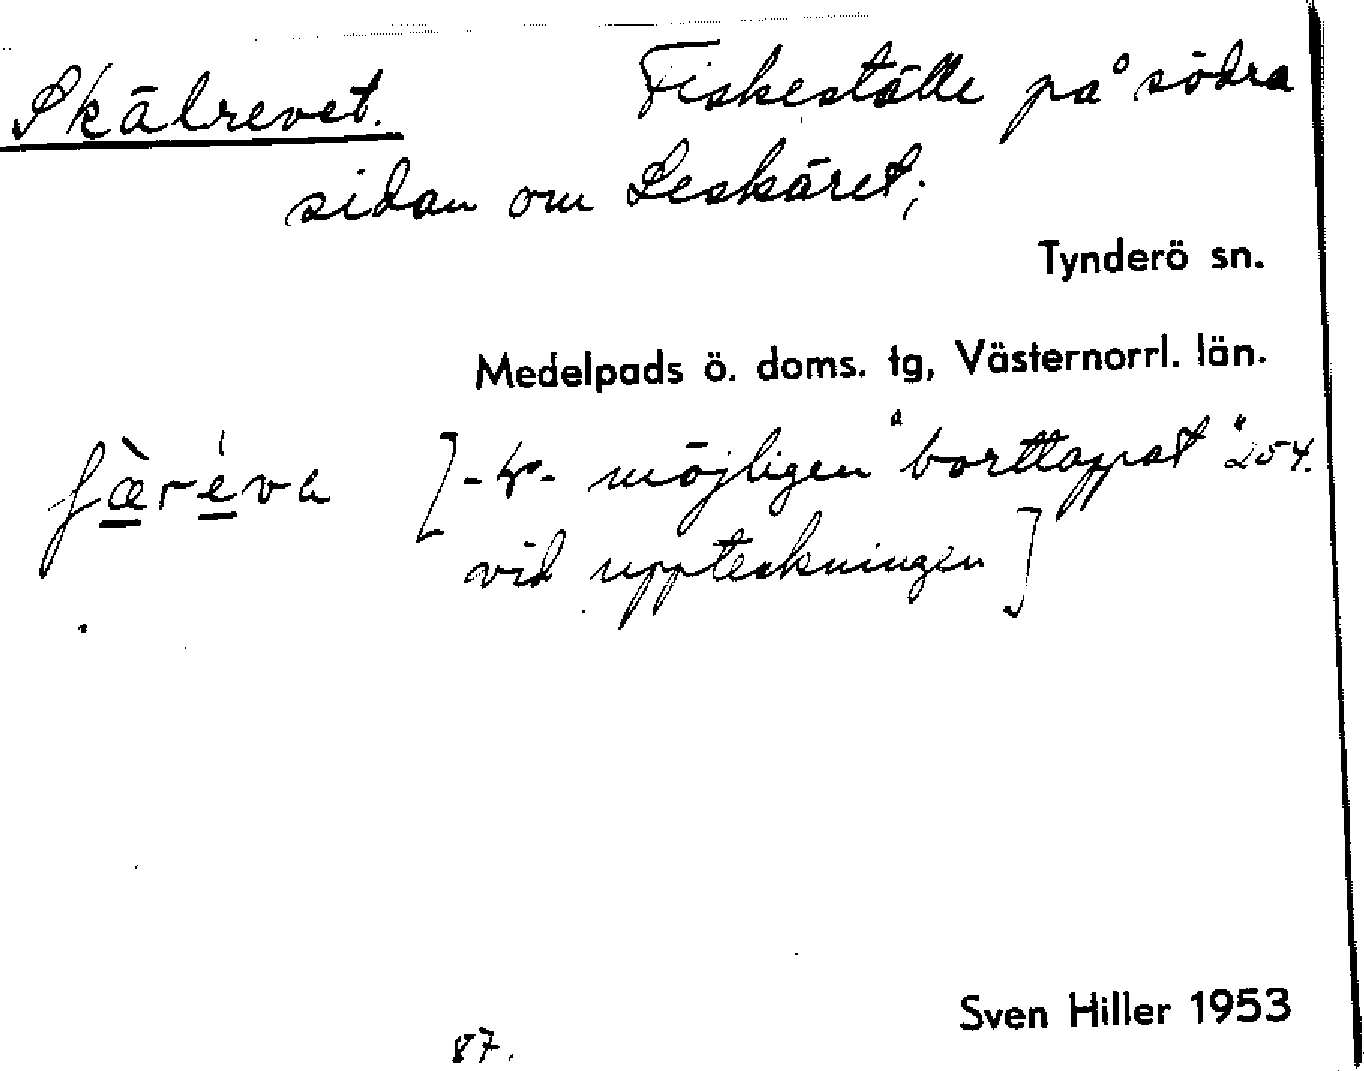 Skälrevet. Fiskeställe på södra
sidan om Leskäret;
Tynderö sn.
Medelpads ö. doms. tg, Västernorrl. län.
ʃæ̀réva [- - möjligen "borttappat" 254.
vid uppteckningen]
Sven Hiller 1953
87.